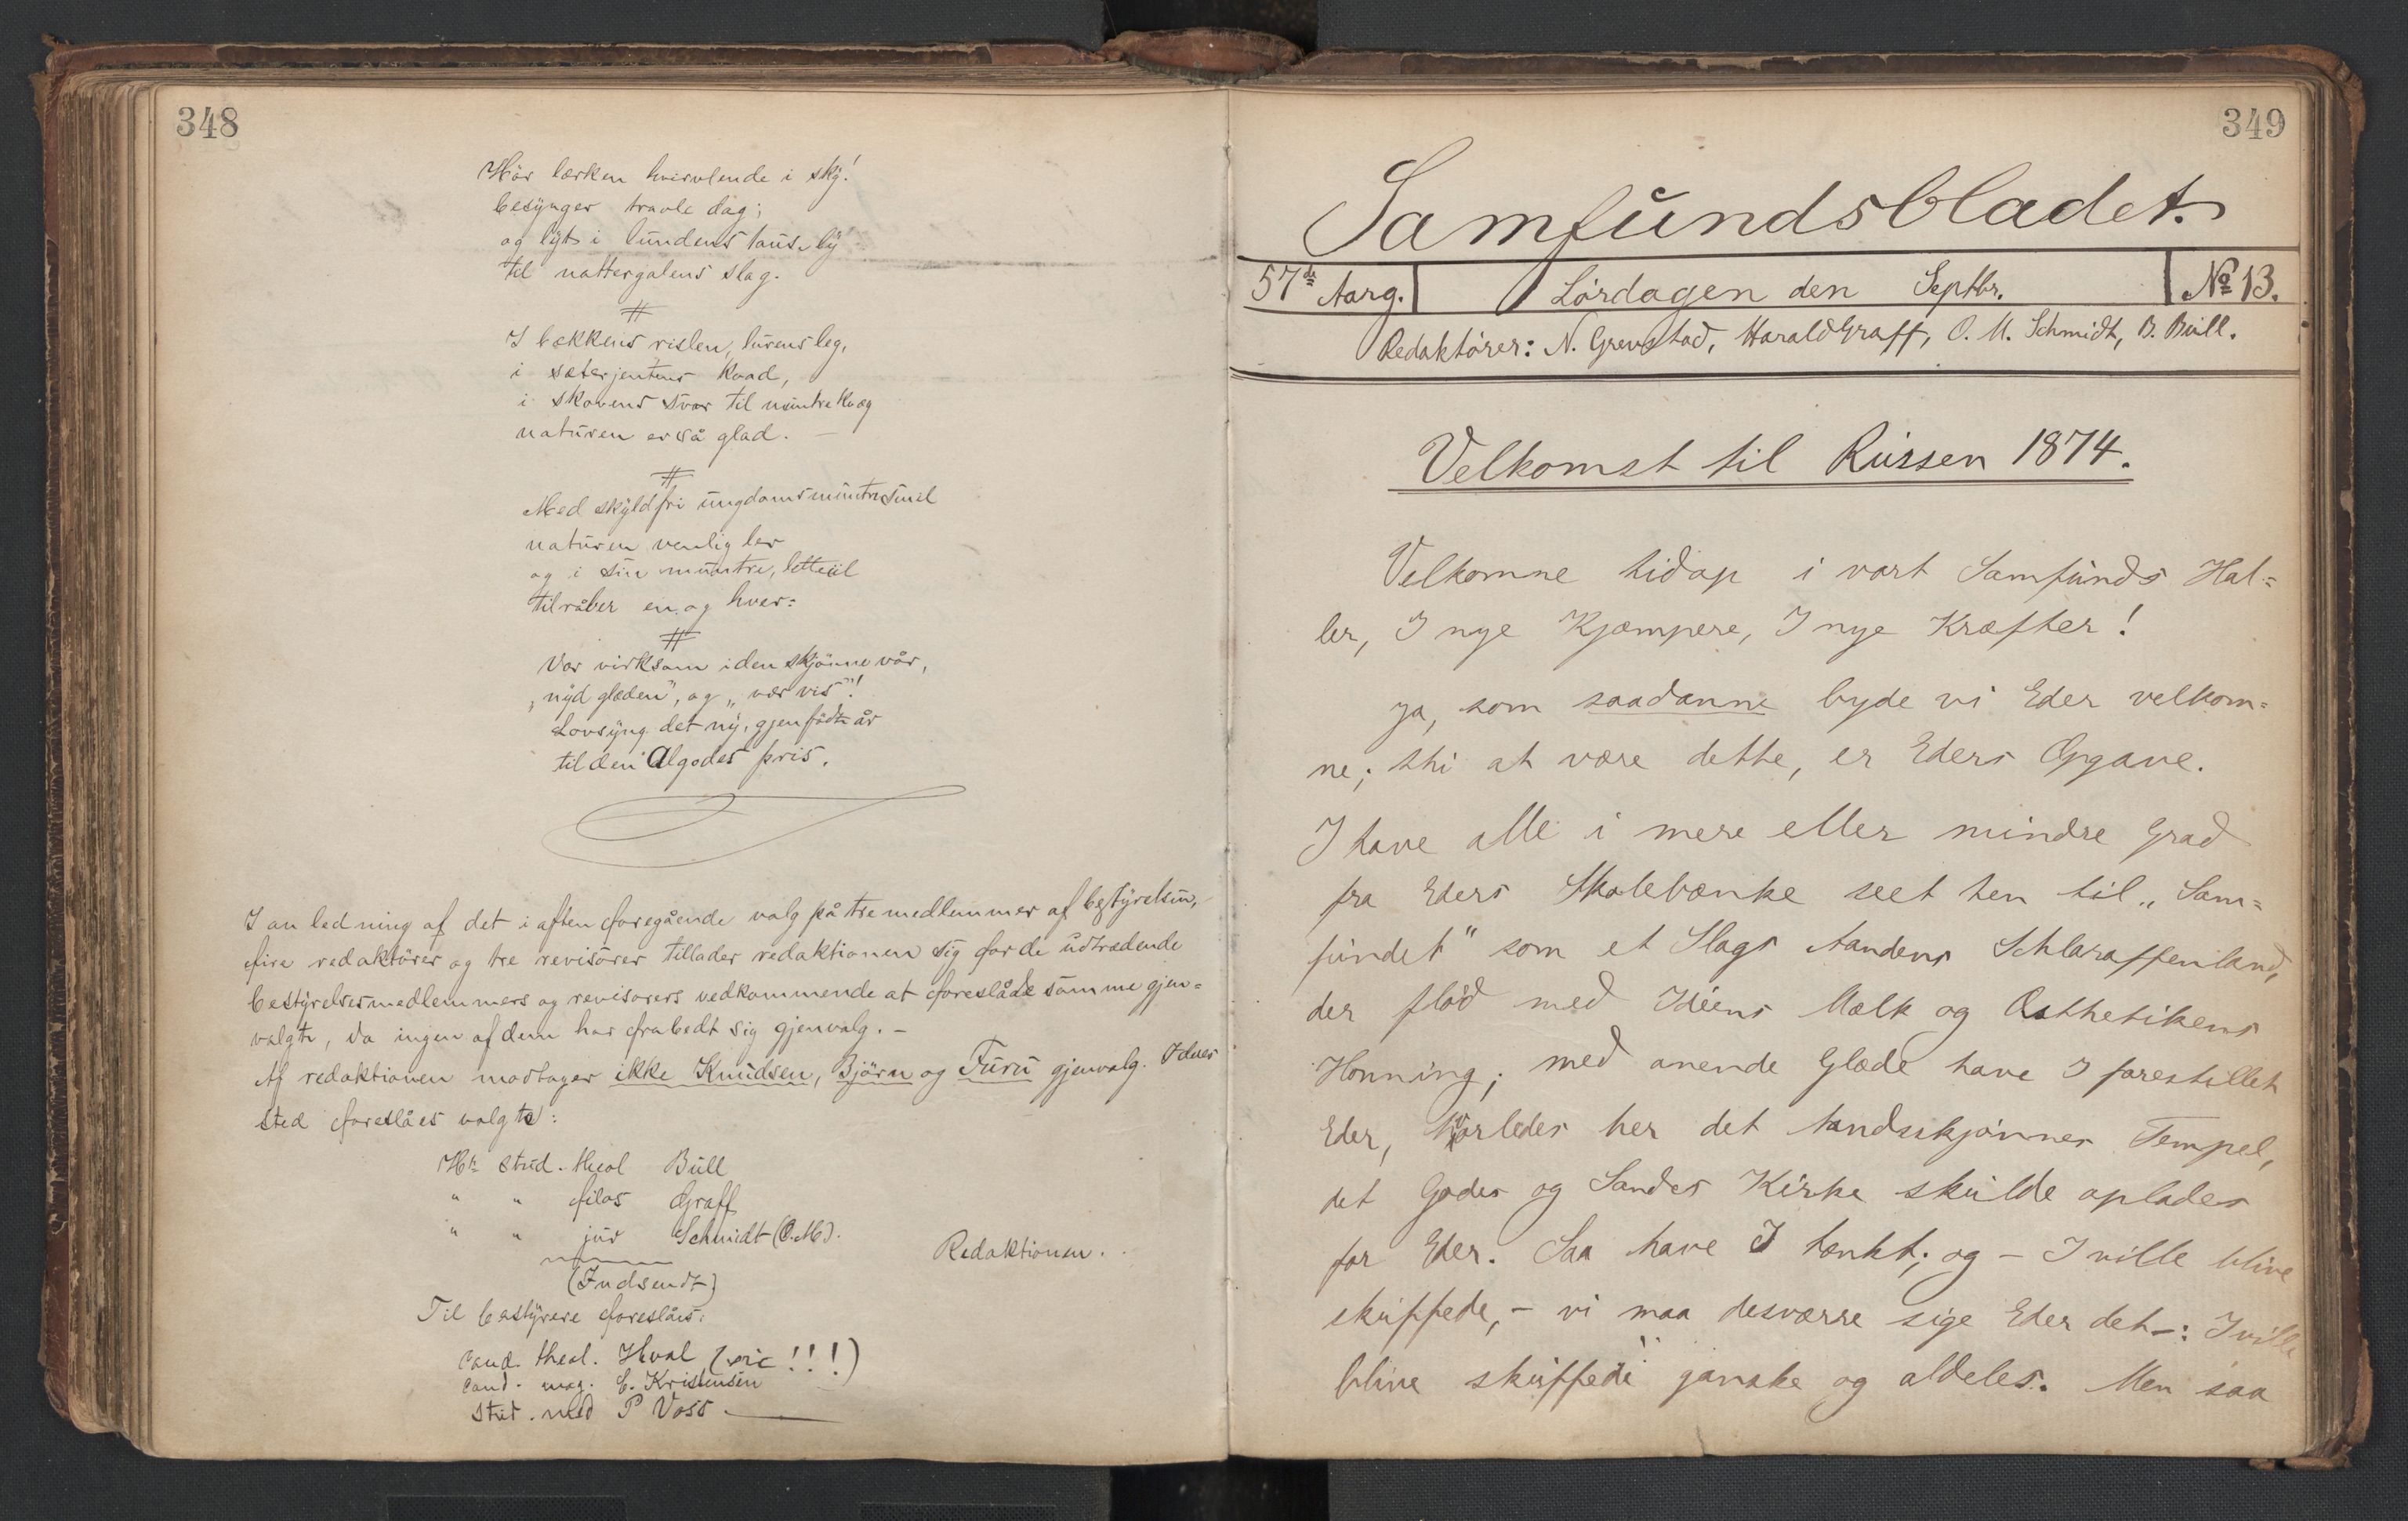 348
Hör lærken hvirvlende i sky!
besynger travle dag;
og lyt i lundens tause ly
til nattergalens slag.
#
I bækkens rislen, lurens leg,
i sæterjentens kvad,
i skovens svar til muntre kvæg
naturen er så glad. —
#
Med skyldfri ungdoms muntre smil
naturen venlig ler
og i sin muntre, lette iil
tilråber en og hver:
#
Vær virksom i den skjönne vår,
„nyd glæden", og „vær vis"!
Lovsyng det ny, gjenfödte år
til den Algodes pris.
I anledning af det i aften foregående valg på tre medlemmer af bestyrelsen,
fire redaktörer og tre revisorer tillader redaktionen sig for de udtrædende
bestyrelsesmedlemmers og revisorers vedkommende at foreslå samme gjen=
valgte, da ingen af dem har frabedt sig gjenvalg. —
Af redaktionen modtager ikke Knudsen, Björn og Furu gjenvalg. I deres
sted foreslåes valgte:
Hr. stud. theol Bull
" " filos Graff
" " jur Schmidt (O.M.).
Redaktionen.
(Indsendt)
Til bestyrere foreslåes:
cand. theol. Hval (sic!!!)
cand. mag. C. Kristensen
stud. med P Voss
349
Samfundsbladet.
57de Aarg. Lördagen den Septbr. No 13.
Redaktörer: N. Grevstad, Harald Graff, O. M. Schmidt, B. Bull.
Velkomst til Russen 1874.
Velkomne hidop i vort Samfunds Hal=
ler, I nye Kjæmpere, I nye Kræfter!
Ja, som saadanne byde vi Eder velkom=
ne; thi at være dette, er Eders Opgave.
I have alle i mere eller mindre Grad
fra Eders Skolebænke seet hen til „Sam=
fundet" som et Slags Aandens Schlaraffenland,
der flöd med Idéens Mælk og Æsthetikens
Honning; med anende Glæde have I forestillet
Eder, hvorledes her det Aandsskjönnes Tempel,
det Godes og Sandes Kirke skulde oplades
for Eder. Saa have I tænkt; og — I ville blive
skuffede, — vi maa desværre sige Eder det —: I ville
blive skuffede ganske og aldeles. Men saa